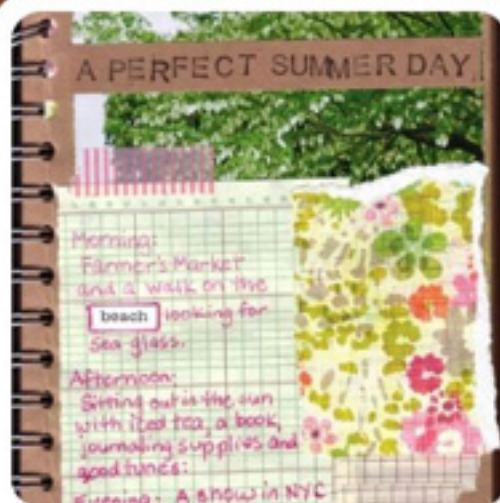 A PERFECT SUMMER DAY
Morning:
Farmer's Market
and a walk on the
beach looking for
sea glass.
Afternoon:
Sitting out in the sun
with iced tea, a book,
journaling supplies and
good tunes:
Evening: A show in NYC